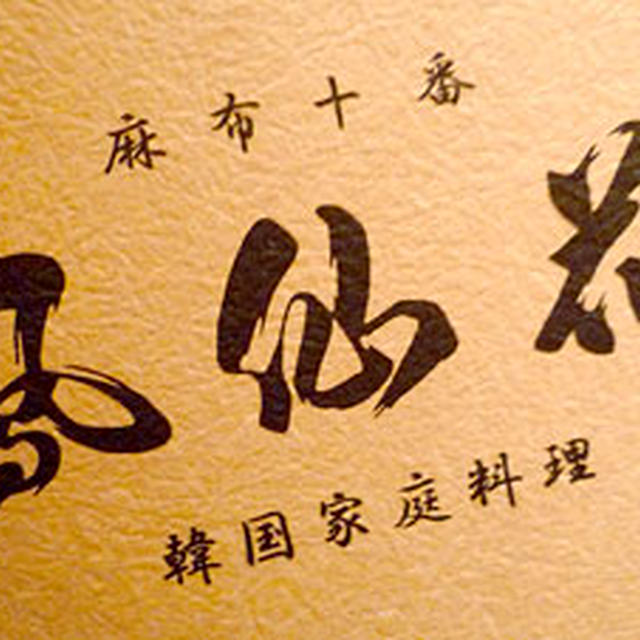 麻布十番
仙
韓国家庭料理